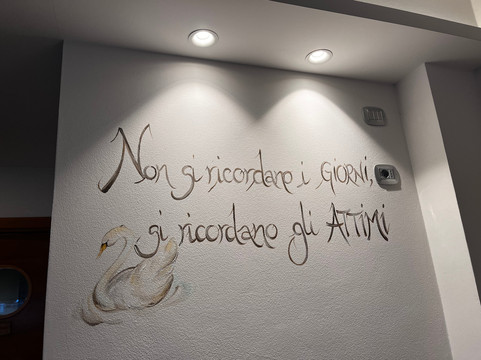 Non si ricordano i GIORNI,
si ricordano gli ATTIMI